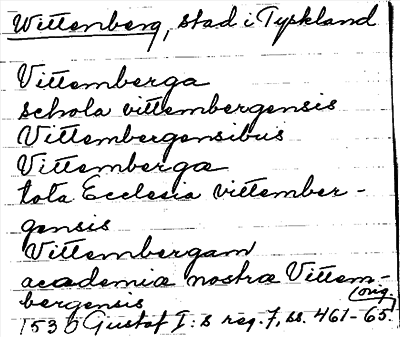 Wittenberg, stad i Tyskland
Vittemberga
schola vittembergensis
Vittembergensibus
Vittembergæ
tota Ecclesia vittember-
gensis
Vittembergam
academiæ nostræ Vittem-
bergensis (orig.)
1530 Gustaf I:s reg. 7, ss. 461-65.